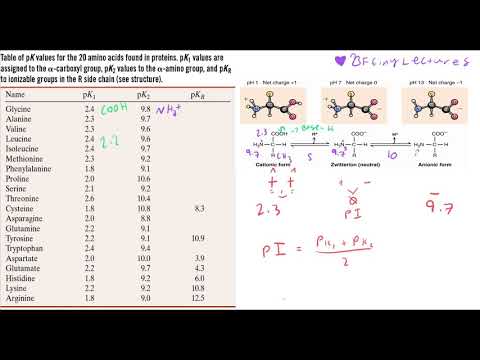 Table of pK values for the 20 amino acids found in proteins. pK1 values are
assigned to the α-carboxyl group, pK2 values to the α-amino group, and pKR
to ionizable groups in the R side chain (see structure).
Name pK1 pK2 pKR
Glycine 2.4 COOH 9.8 NH3+
Alanine 2.3 9.7
Valine 2.3 9.6
Leucine 2.4 9.6
Isoleucine 2.4 9.7
2.2
Methionine 2.3 9.2
Phenylalanine 1.8 9.1
Proline 2.0 10.6
Serine 2.1 9.2
Threonine 2.6 10.4
Cysteine 1.8 10.8 8.3
Asparagine 2.0 8.8
Glutamine 2.2 9.1
Tyrosine 2.2 9.1 10.9
Tryptophan 2.4 9.4
Aspartate 2.0 10.0 3.9
Glutamate 2.2 9.7 4.3
Histidine 1.8 9.2 6.0
Lysine 2.2 9.2 10.8
Arginine 1.8 9.0 12.5
♥ BFCiny Lectures
pH 1 · Net charge +1
pH 7 · Net charge 0
pH 13 · Net charge −1
2.3 COOH → Base-H
H+
COO−
H+
COO−
9.7 CH3 5 9.7 10
Cationic form
Zwitterion (neutral)
Anionic form
+ + + − −
2.3 0 9.7
PI
pI = pK1 + pK2
2